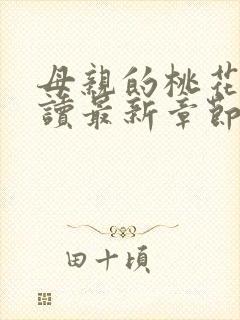 母親的桃花
讀最新章節
田十頃